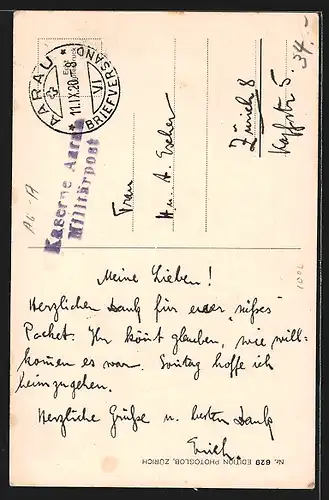 AARAU
11.IX.20.-8
VI
BRIEFVERSAND
Kaserne Aarau
Militärpost
34.-
AG-A
Frau
H. u. A. Escher
Zürich 8
Kopfstr 5.
Meine Lieben!
Herzlichen Dank für euer "süßes"
Packet. Ihr könnt glauben, wie will=
kommen es war. Sontag hoffe ich
heimzugehen.
Herzliche Grüße u. besten Dank
Erich.
Nr. 629 EDITION PHOTOGLOB, ZÜRICH